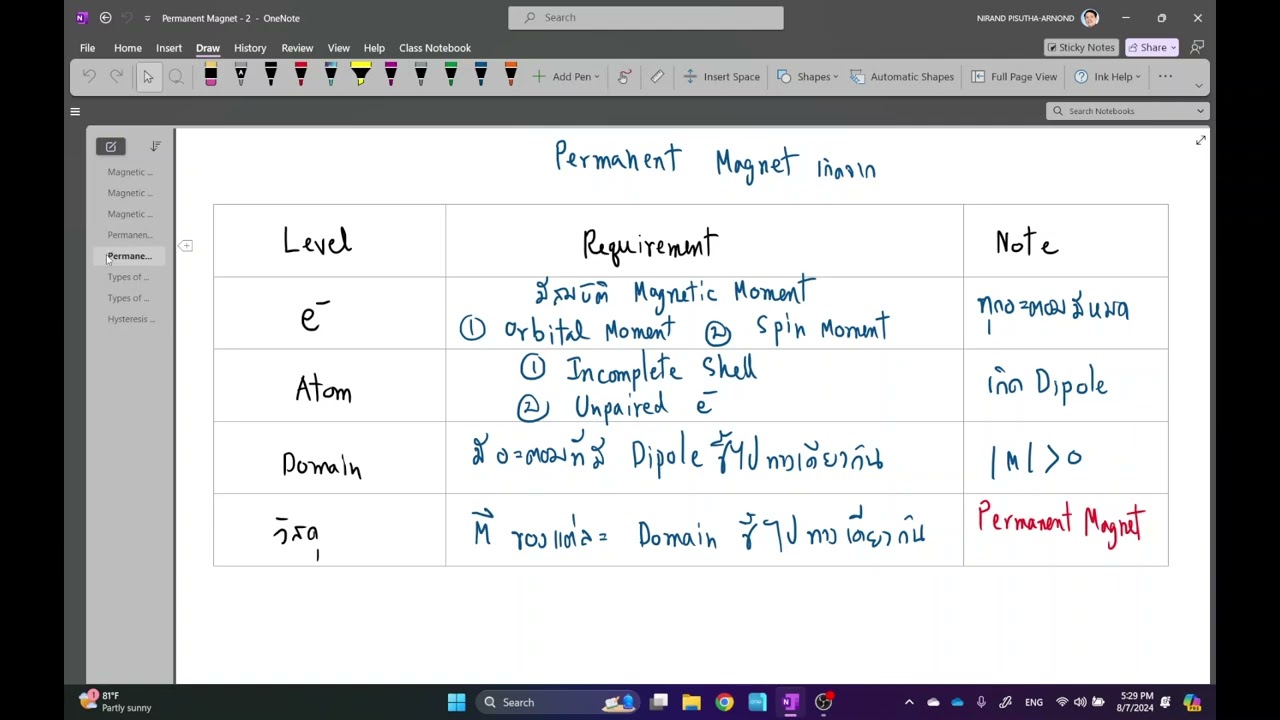 Permanent Magnet - 2 - OneNote
Search
NIRAND PISUTHA-ARNOND
File Home Insert Draw History Review View Help Class Notebook
Sticky Notes Share
Add Pen Insert Space Shapes Automatic Shapes Full Page View Ink Help
Search Notebooks
Magnetic ...
Magnetic ...
Magnetic ...
Permanen...
Permane...
Types of ...
Types of ...
Hysteresis ...
Permanent Magnet เกิดจาก
Level Requirement Note
e⁻
มีสมบัติ Magnetic Moment
① Orbital Moment ② Spin Moment
ทุกอะตอมมีหมด
Atom
① Incomplete Shell
② Unpaired e⁻
เกิด Dipole
Domain มีอะตอมที่มี Dipole ชี้ไปทางเดียวกัน |M| > 0
วัสดุ M ของแต่ละ Domain ชี้ไปทางเดียวกัน Permanent Magnet
81°F
Partly sunny
1
Search
ENG
5:29 PM
8/7/2024